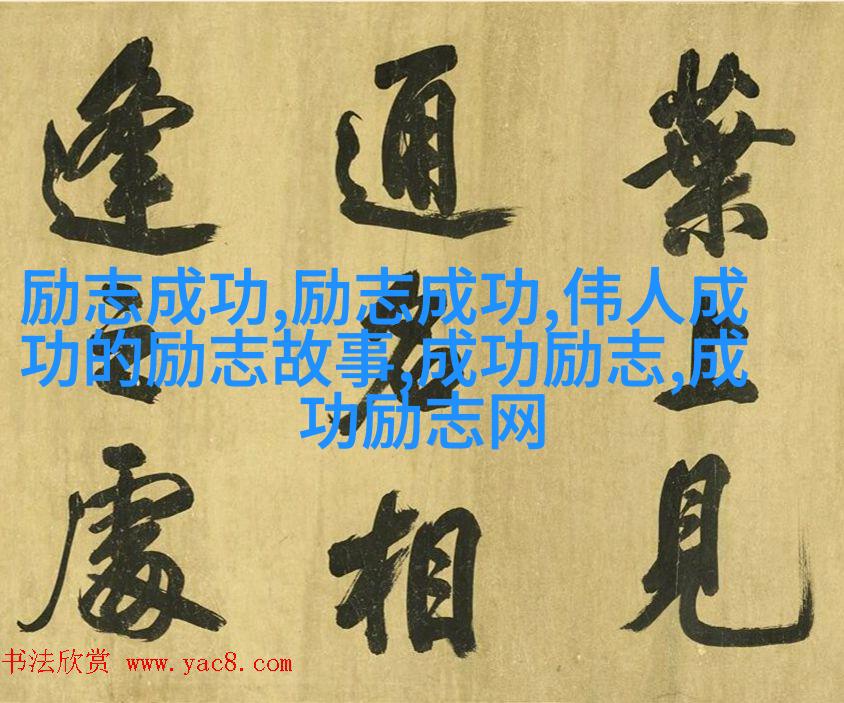 葉上見
通相
逢處
励志成功,励志成功,伟人成
功的励志故事,成功励志,成
功励志网
书法欣赏 www.yac8.com